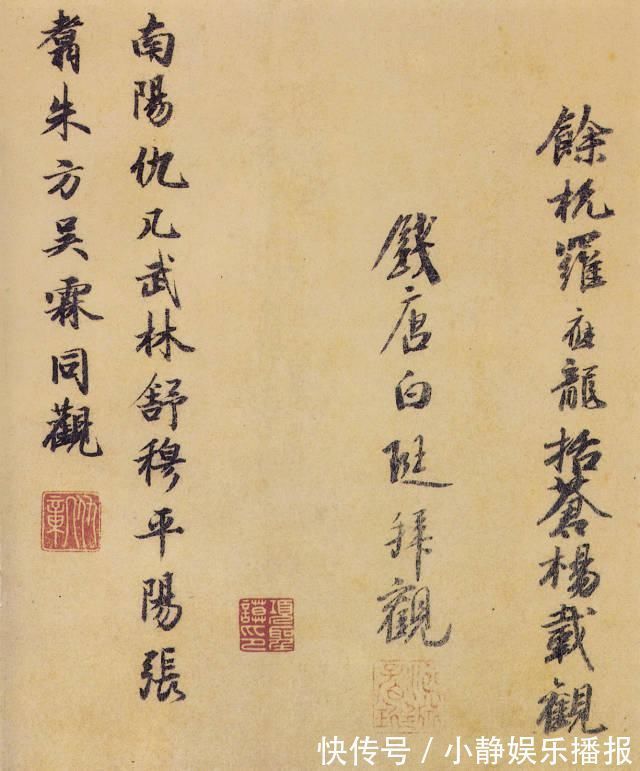 餘杭羅龍括蒼楊載觀
錢唐白珽拜觀
項聖謨印
南陽仇几武林舒穆平陽張
翥朱方吳霖同觀
快传号 / 小静娱乐播报